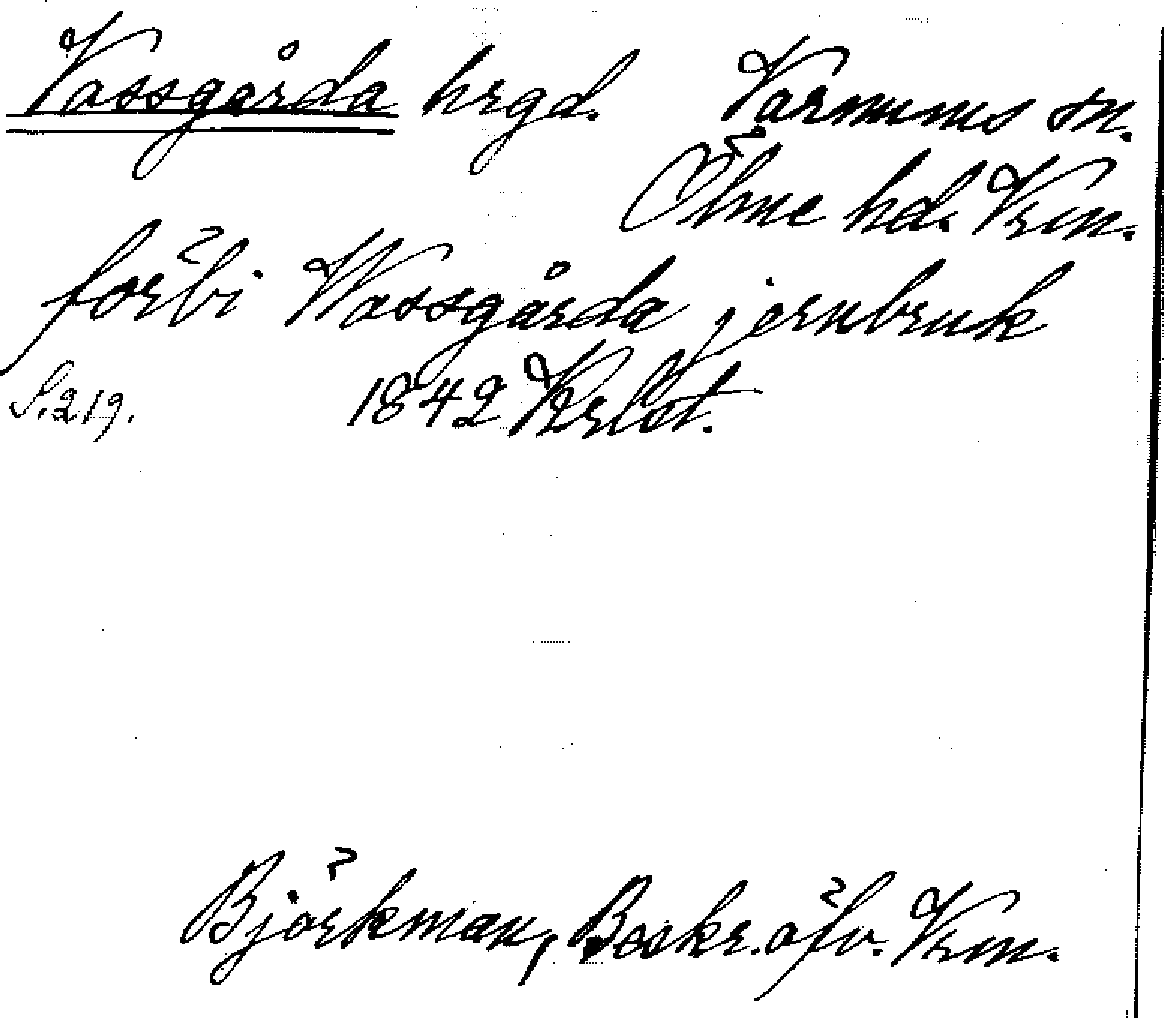 Vassgårda hrgd. Varnums sn.
Ölme hd. Vrm.
förbi Wassgårda jernbruk
S. 219. 1842 Krlst.
Björkman, Beskr. öfv. Vrm.